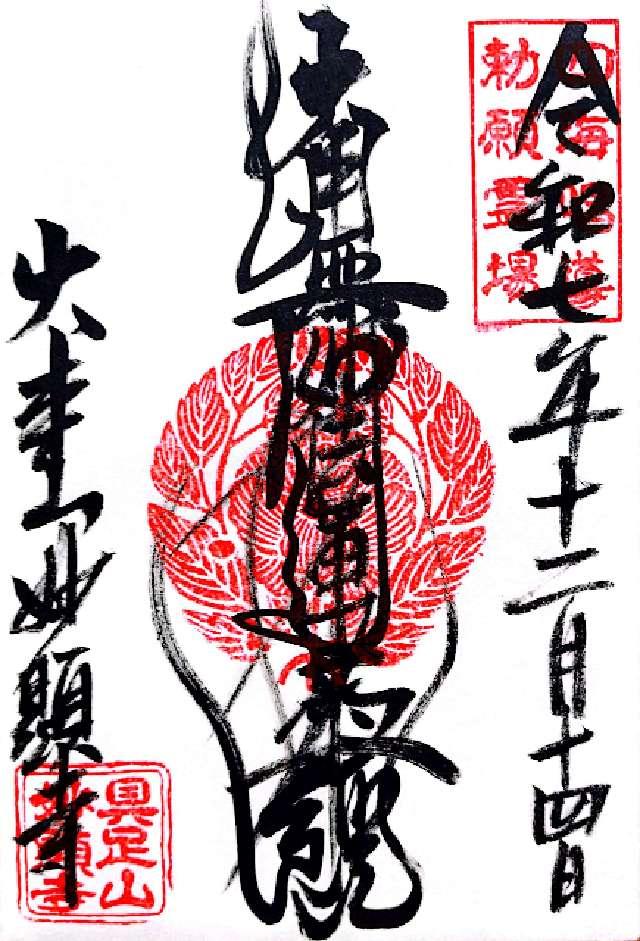 四海唱導
勅願霊場
令和七年十二月十四日
南無妙法蓮華經
大本山妙顯寺
具足山
妙顯寺